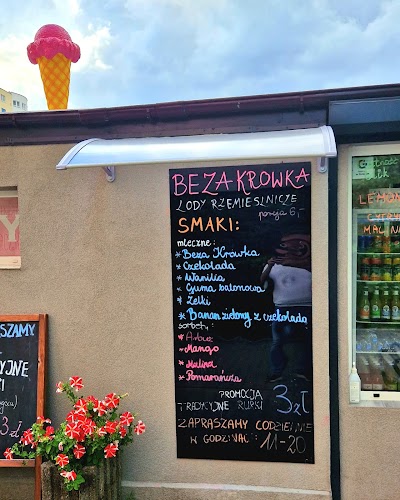 BEZA KROWKA
LODY RZEMIEŚLNICZE
porcja 6,-
SMAKI:
mleczne:
* Beza Krówka
* Czekolada
* Wanilia
* Guma balonowa
* Żelki
* Banan zielony z czekoladą
sorbety:
* Arbuz
* Mango
* Malina
* Pomarańcza
PROMOCJA
TRADYCYJNE RURKI 3zł
ZAPRASZAMY CODZIENNIE
W GODZINAC: 11-20
SZAMY
YJNE
3zł
LEMON
MALIN